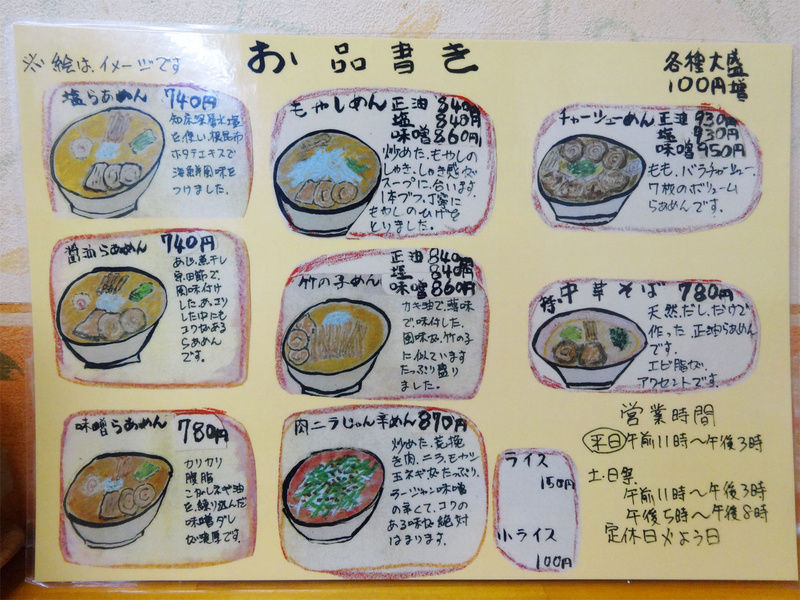 お品書き
※絵は、イメージです
各種大盛
100円増
塩らあめん 740円
を使い、根昆布
ホタテエキスで
海鮮風味を
つけました。
醤油らあめん 740円
あじ煮干し
宗田節で、
風味付け
した、あっさり
した中にも
コクのある
らあめん
です。
味噌らあめん 780円
カリカリ
腹脂
こがしネギ油
を練り込んだ
味噌ダレ
が濃厚です。
もやしめん 正油 840円
塩 840円
味噌 860円
炒めた、もやしの
しゃき、しゃき感が
スープに、合います。
1本づつ、丁寧に
もやしのひげを
とりました。
竹の子めん
正油 840円
塩 840円
味噌 860円
カキ油で、薄味
で、味付した、
風味が、竹の子
に似ています
たっぷり盛り
ました。
肉ニラじゃん辛めん 870円
炒めた、荒挽
き肉、ニラ、モヤシ
玉ネギが、たっぷり、
ラージャン味噌
の辛くて、コクの
ある味が絶対
はまります。
チャーシューめん 正油 930円
塩 930円
味噌 950円
もも、バラチャーシュー、
7枚のボリューム
らあめんです。
特 中華そば 780円
天然、だし、だけで
作った正油らあめん
です。
エビ脂が、
アクセントです。
ライス
150円
小ライス
100円
営業時間
平日 午前11時〜午後3時
土・日祭
午前11時〜午後3時
午後5時〜午後8時
定休日火よう日